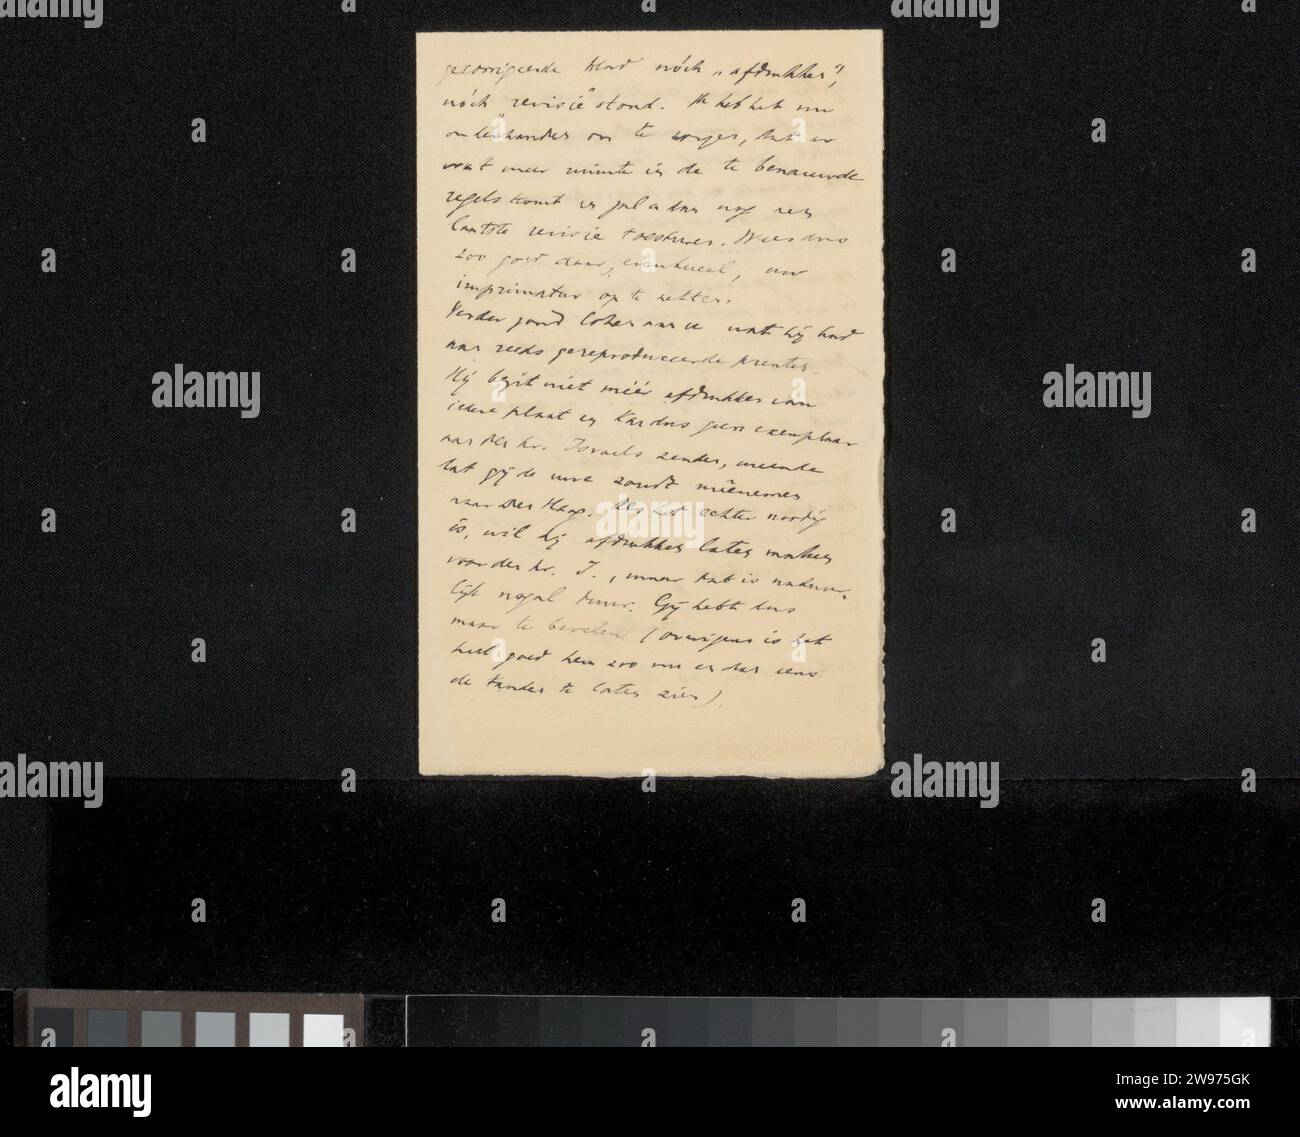 gecorrigeerde blad nóch „afdrukken",
nóch „revisie" stond. Ik heb het nu
onderhanden om te zorgen, dat er
wat meer ruimte in de te benauwde
regels komt en zal u dan nog een
laatste revisie toesturen. Wees dus
zoo goed daar, eventueel, uw
imprimatur op te zetten.
Verder zond Cohen aan u wat hij had
aan reeds gereproduceerde prenten.
Hij bezit niet méér afdrukken van
iedere plaat en kan dus geen exemplaar
aan den hr. Israels zenden, meende
dat gij de uwe zoudt meênemen
naar Den Haag. Als het echter noodig
is, wil hij afdrukken laten maken
voor den hr. I., maar dat is natuur-
lijk nogal duur. Gij hebt dus
maar te bevelen (overigens is het
heel goed hem zoo nu en dan eens
de tanden te laten zien).
alamy
Image ID: 2W975GK
www.alamy.com